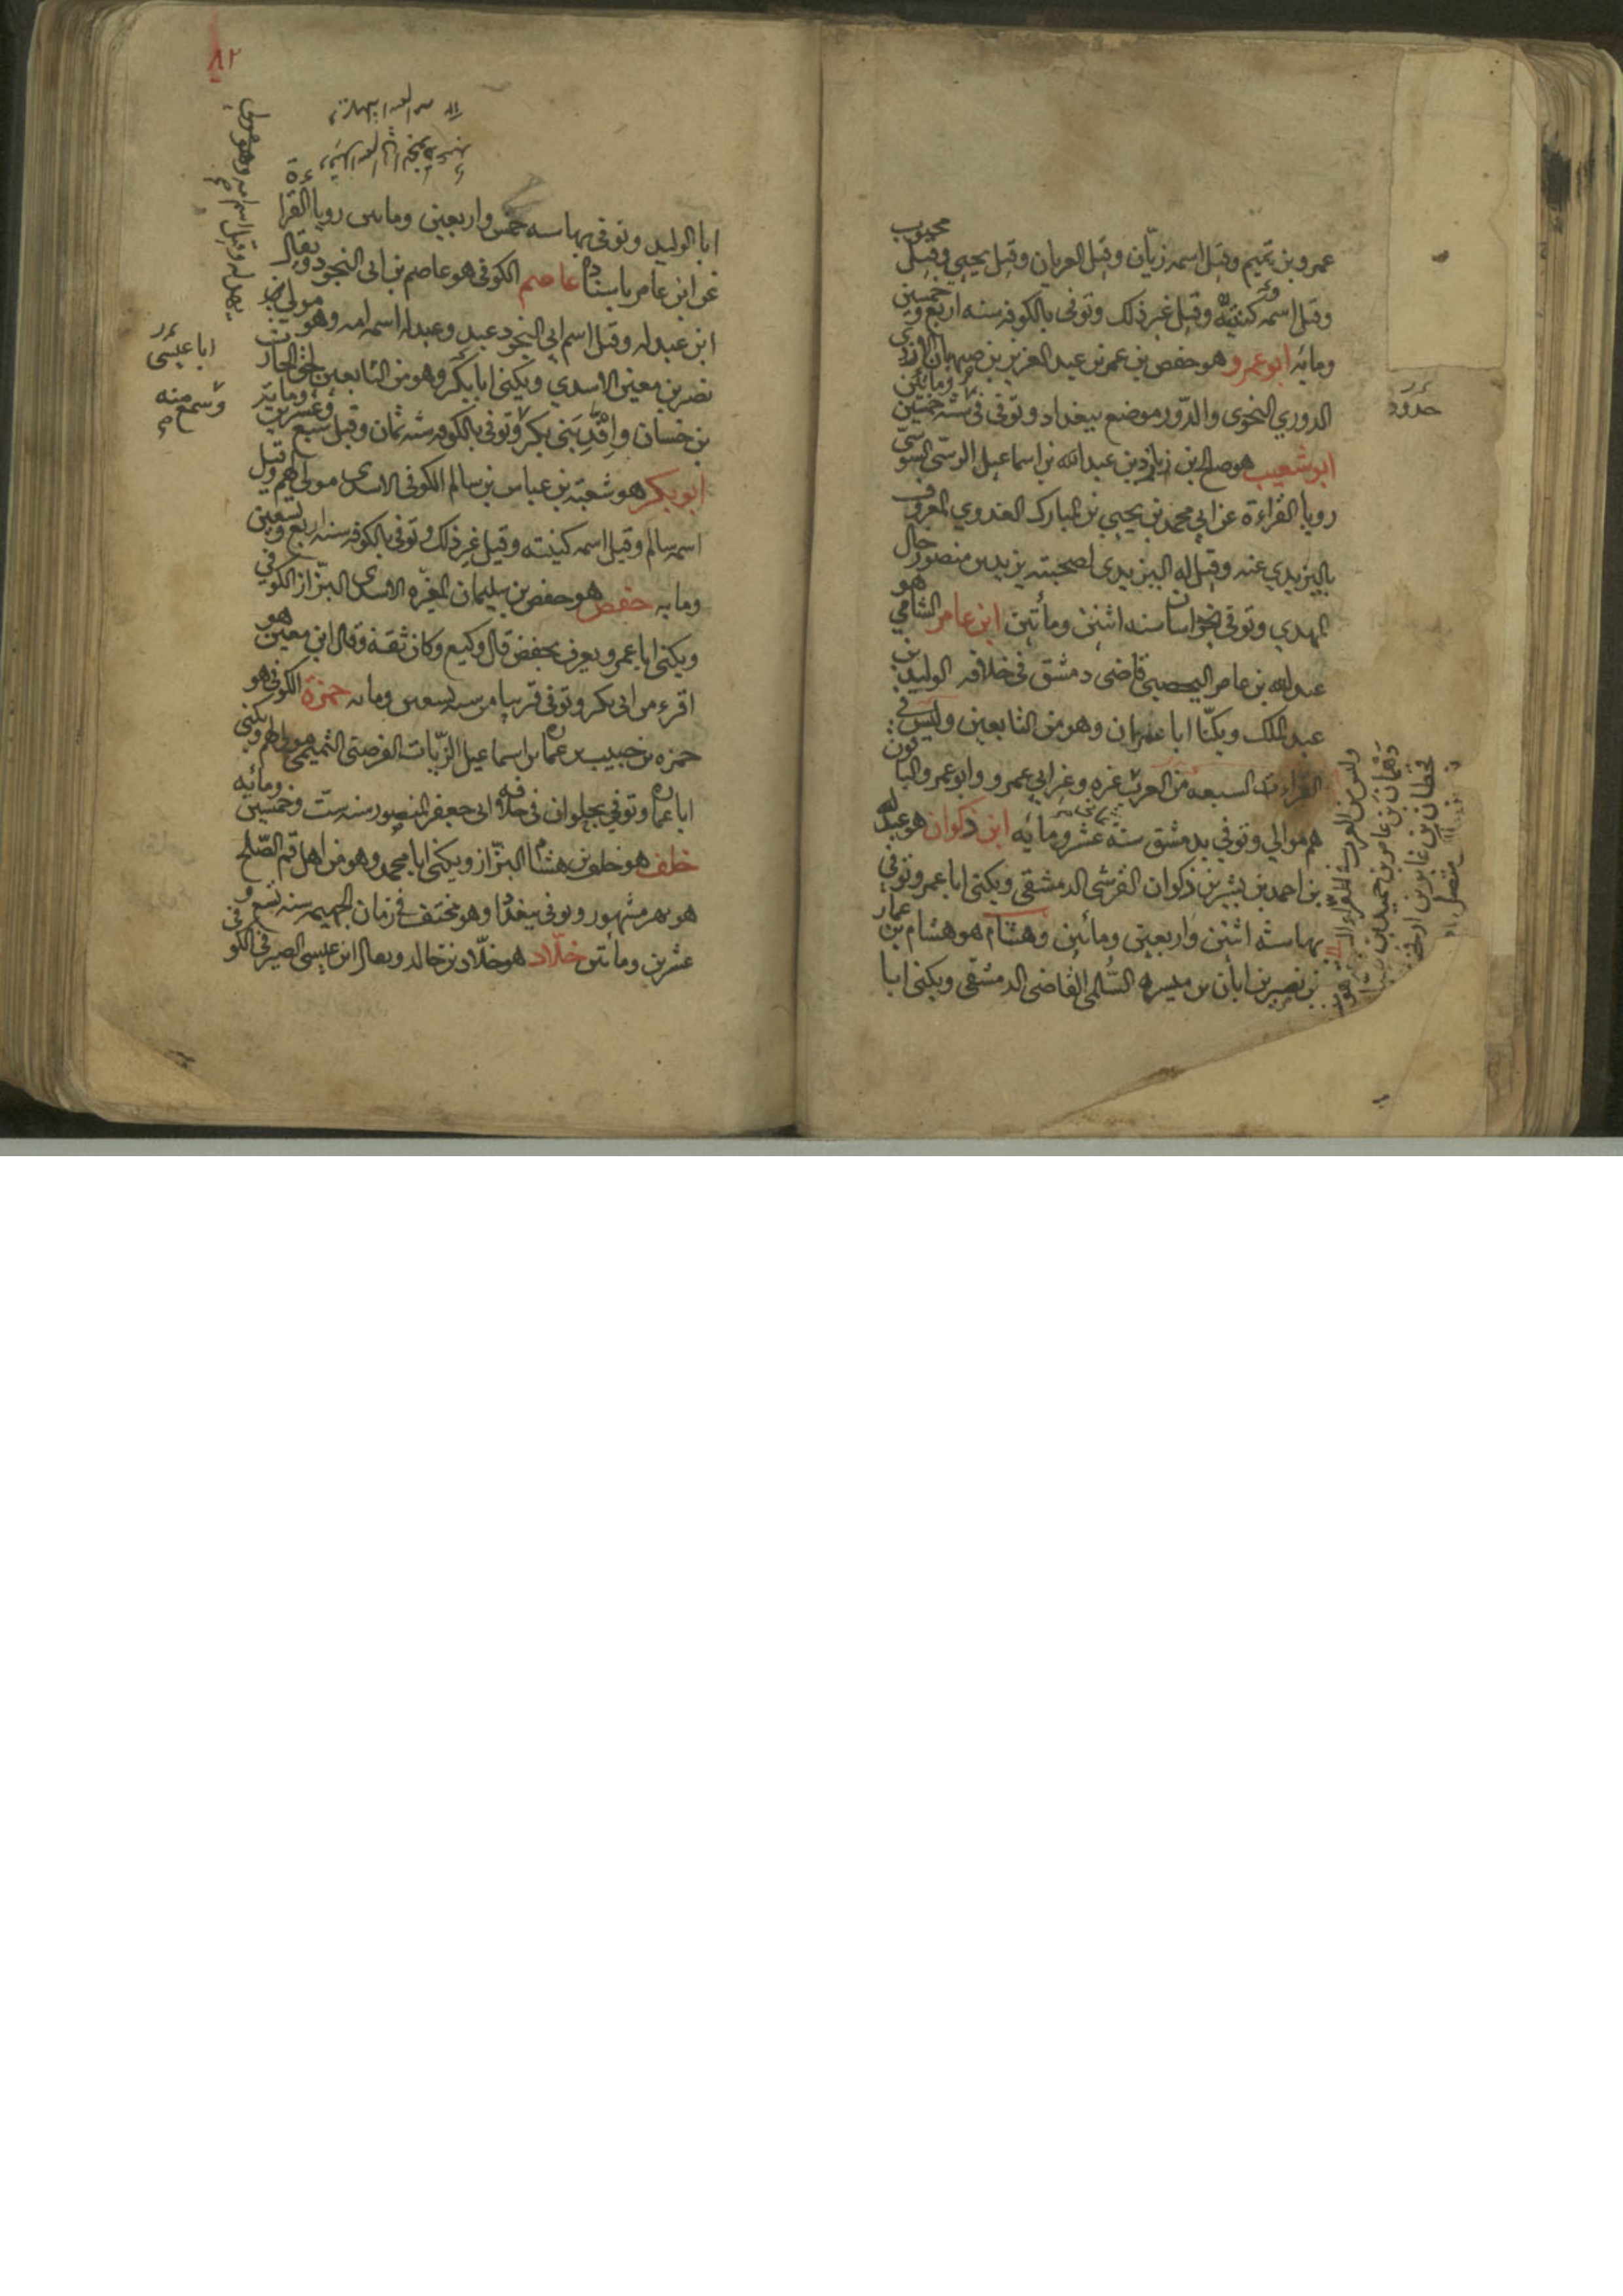 عمرو بن تميم وقيل اسمه زبّان وقيل العريان وقيل يحيى وقيل محبوب
وقيل اسمه كنيته وقيل غير ذلك وتوفى بالكوفه سنه اربع وخمسين
ومايه ابو عمرو هو حفص بن عمر بن عبد العزيز بن صهبان الازدي
الدوري النحوى والدّور موضع ببغداد وتوفى فى سنة خمسين ومائتين
ابو شعيب هو صالح بن زياد بن عبد الله بن اسماعيل الرستى السوسىّ
رويا القراءة عن ابي محمد بن يحيي بن المبارك العدوي المعروف
باليزيدي عنه وقيل له اليزيدى لصحبته يزيد بن منصور خال
المهدي وتوفى بخراسان سنه اثنين ومأتين ابن عامر الشامي هو
عبد الله بن عامر اليحصبي قاضى دمشق فى خلافه الوليد بن
عبد الملك ويكنّا ابا عمران وهو من التابعين وليس في
القراء السبعه من العرب غيره وغير ابي عمرو والباقون
هم موالي وتوفي بدمشق سنة ثمانى عشر ومائه ابن ذكوان هو عبد الله
بن احمد بن بشير بن ذكوان القرشى الدمشقى ويكنى ابا عمرو وتوفي
بها سنة اثنين واربعين ومائين وهشام هو هشام بن عمار
بن نصير بن ابان بن ميسره السُّلمى القاضى الدمشقى ويكنى ابا
قحطان بن عابر بن
٨٢
ابا الوليد وتوفى بها سنه خمس واربعين ومايتين رويا القراءة
عن ابن عامر باسناد عاصم الكوفى هو عاصم بن ابى النجود ويقال
ابن عبدله وقيل اسم ابي النجود عبد وعبدله اسم امه وهو مولى
نصر بن معين الاسدي ويكنى ابا بكر وهو من التابعين لحق الحارث
بن حسان وافد بني بكر وتوفى بالكوفه سنة ثمان وقيل سبع وعشرين ومايه
ابو بكر هو شعبة بن عباس بن سالم الكوفى الاسدى مولاهم وقيل
اسمه سالم وقيل اسمه كنيته وقيل غير ذلك وتوفى بالكوفه سنه اربع وتسعين
ومايه حفص هو حفص بن سليمان المغيره الاسدى البزّاز الكوفي
ويكنى ابا عمر ويعرف بحفيص قال وكيع وكان ثقة وقال ابن معين هو
اقرء من ابى بكر وتوفى قريبا من سنه تسعين ومايه حمزة الكوفى هو
حمزه بن حبيب بن عماره بن اسماعيل الزيّات الفرضتى التميمى مولاهم ويكنى
ابا عماره وتوفي بحلوان فى خلافه ابى جعفر المنصور سنه ست وخمسين ومائه
خلف هو خلف بن هشام البزّاز ويكنى ابا محمد وهو من اهل فم الصّلح
هو نهر مشهور وتوفى ببغداد وهو مختف في زمان الجهميه سنه تسع و
عشرين ومأتين خلّاد هو خلّاد بن خالد ويقال ابن عيسى الصيرفى الكوفى
ابا عيسى
وسمع منه